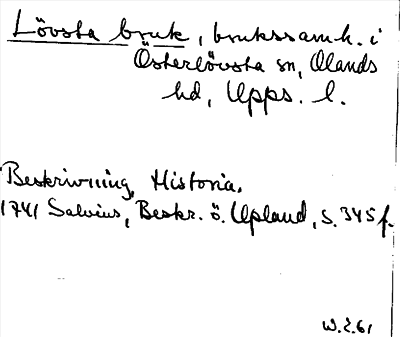 Lövsta bruk, brukssamh. i
Österlövsta sn, Olands
hd, Upps. l.
Beskrivning, Historia.
1741 Salvius, Beskr. ö. Upland, s. 345 f.
W.E.61